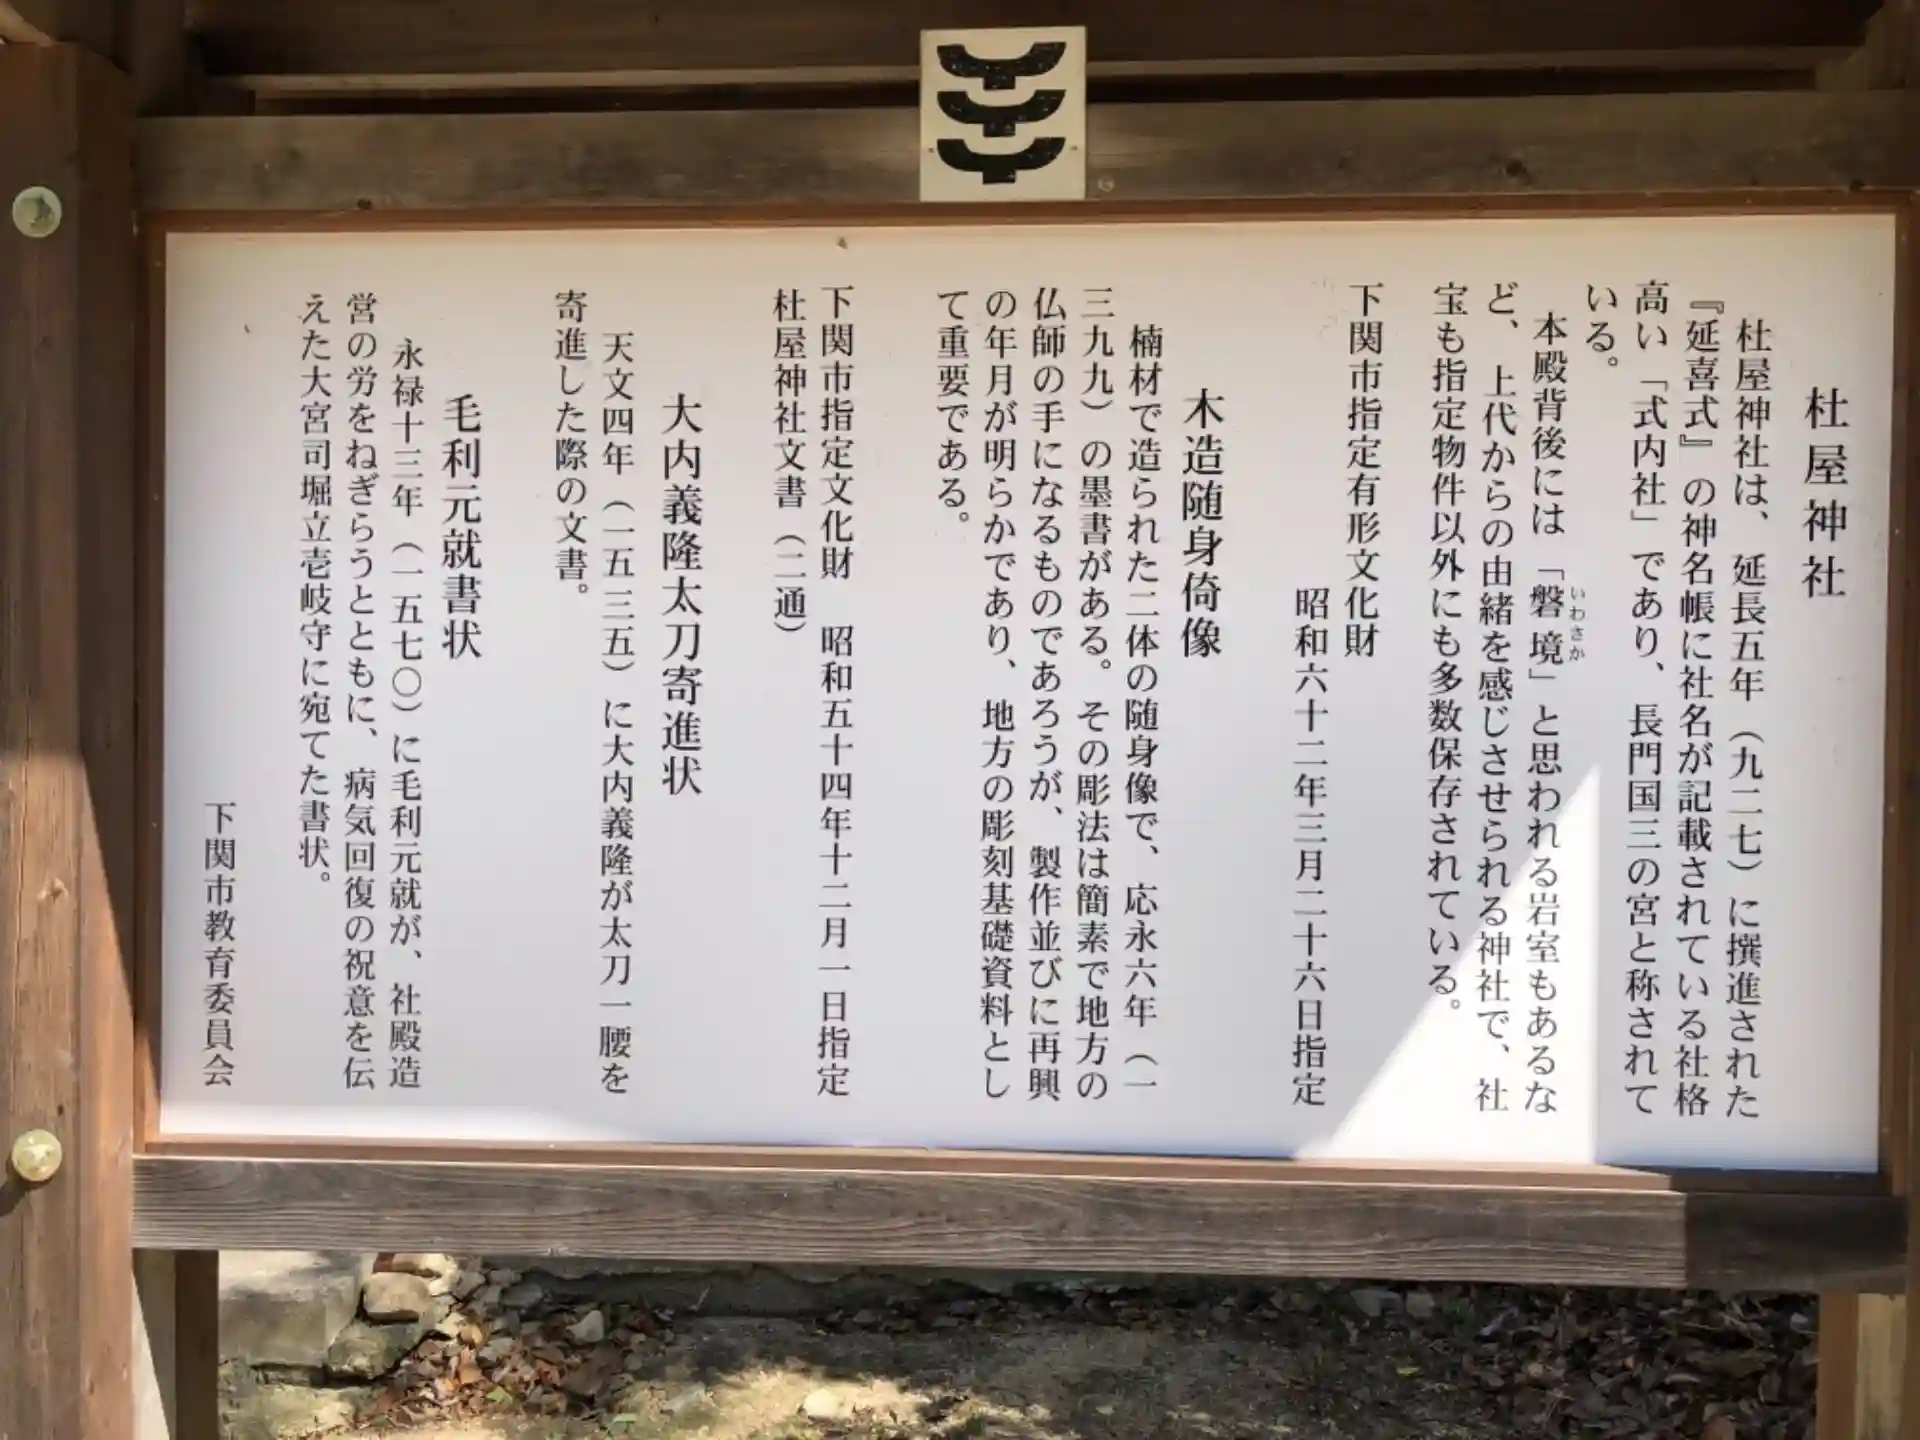 杜屋神社
杜屋神社は、延長五年（九二七）に撰進された
『延喜式』の神名帳に社名が記載されている社格
高い「式内社」であり、長門国三の宮と称されて
いる。
本殿背後には「磐境」と思われる岩室もあるな
いわさか
ど、上代からの由緒を感じさせられる神社で、社
宝も指定物件以外にも多数保存されている。
下関市指定有形文化財
昭和六十二年三月二十六日指定
木造随身倚像
楠材で造られた二体の随身像で、応永六年（一
三九九）の墨書がある。その彫法は簡素で地方の
仏師の手になるものであろうが、製作並びに再興
の年月が明らかであり、地方の彫刻基礎資料とし
て重要である。
下関市指定文化財　昭和五十四年十二月一日指定
杜屋神社文書（二通）
大内義隆太刀寄進状
天文四年（一五三五）に大内義隆が太刀一腰を
寄進した際の文書。
毛利元就書状
永禄十三年（一五七〇）に毛利元就が、社殿造
営の労をねぎらうとともに、病気回復の祝意を伝
えた大宮司堀立壱岐守に宛てた書状。
下関市教育委員会